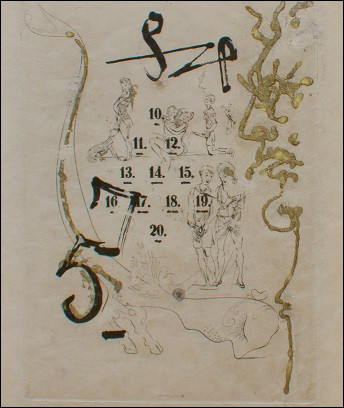 10.
11. 12.
13. 14. 15.
16 17. 18. 19.
20.
75